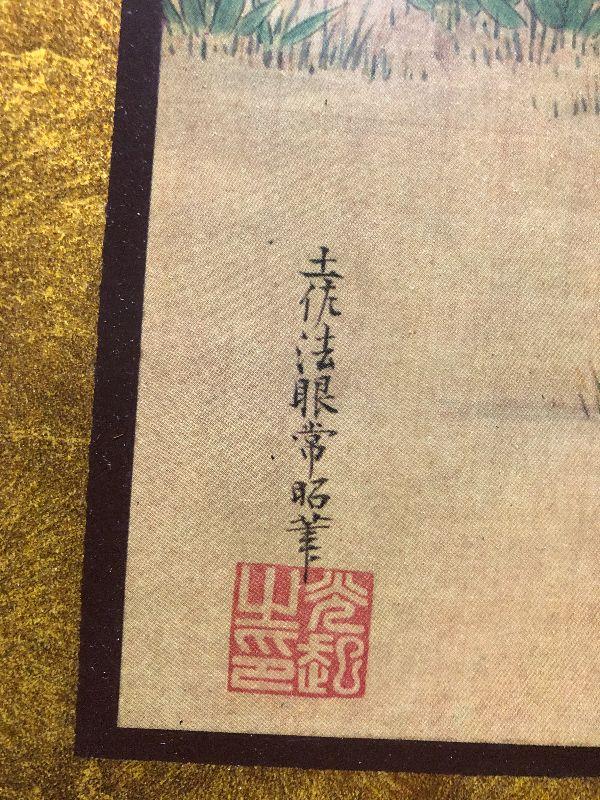 土佐法眼常昭筆
光起之印